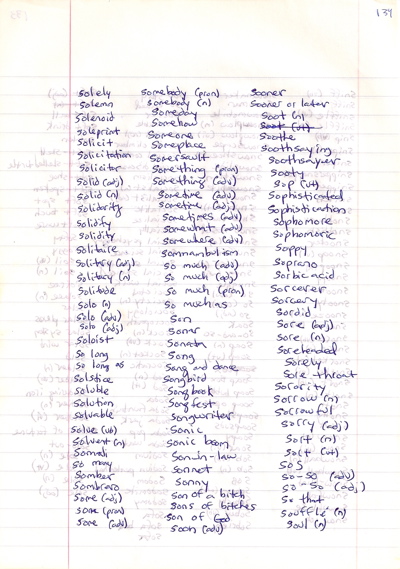 134
solely
solemn
solenoid
soleprint
solicit
solicitation
solicitor
solid (adj)
solid (n)
solidarity
solidify
solidity
solitaire
solitary (adj)
solitary (n)
solitude
solo (n)
solo (adv)
solo (adj)
soloist
so long
so long as
solstice
soluble
solution
solvable
solve (vt)
solvent (n)
Somali
so many
somber
sombrero
some (adj)
some (pron)
some (adv)
somebody (pron)
somebody (n)
someday
somehow
someone
someplace
somersault
something (pron)
something (adv)
sometime (adv)
sometime (adj)
sometimes (adv)
somewhat (adv)
somewhere (adv)
somnambulism
so much (adv)
so much (adj)
so much (pron)
so much as
son
sonar
sonata
song
song and dance
songbird
songbook
songfest
songwriter
sonic
sonic boom
son-in-law
sonnet
sonny
son of a bitch
sons of bitches
son of God
soon (adv)
sooner
sooner or later
soot (n)
soot (vt)
soothe
soothsaying
soothsayer
sooty
sop (vt)
sophisticated
sophistication
sophomore
sophomoric
soppy
soprano
sorbic acid
sorcerer
sorcery
sordid
sore (adj)
sore (n)
soreheaded
sorely
sore throat
sorority
sorrow (n)
sorrowful
sorry (adj)
sort (n)
sort (vt)
SOS
so-so (adv)
so-so (adj)
so that
soufflé (n)
soul (n)